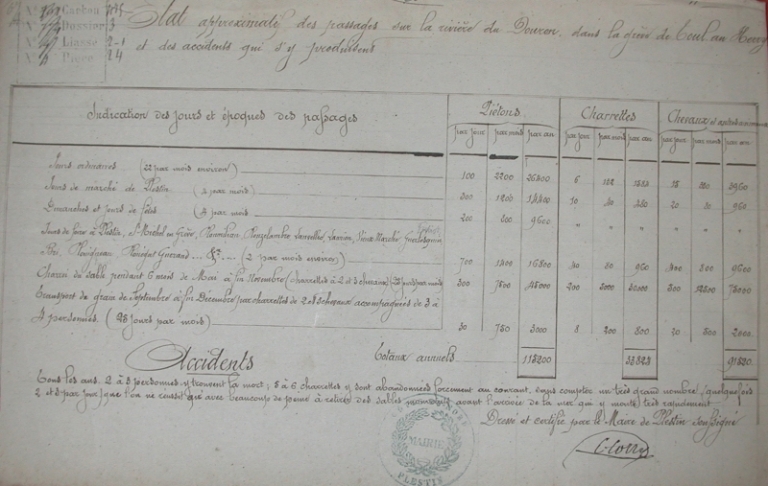 N° Carton
N° Dossier 3
N° Liasse 2-1
N° Pièce 24
Etat approximatif des passages sur la rivière du Douron, dans la grève de Toul an Hery
et des accidents qui s'y produisent
Indication des jours et époques des passages
Piétons Charrettes Chevaux et
par jour par mois par an par jour par mois par an par jour par mois par an
Jours ordinaires (22 par mois environ) 100 2200 26400 6 132 15 330 3960
Jours de marché de Plestin (4 par mois) 300 1200 14400 10 40 480 20 80 960
Dimanches et jours de fêtes (4 par mois) 200 800 9600 " " " " " "
Jours de foire à Plestin, St Michel en Grève, Ploumilliau, Lanvellec, Lannion, Vieux Marché, Guerlesquin,
Plouigneau (2 par mois environ) 700 1400 16800 40 80 960 400 800 9600
Charroi du sable pendant 6 mois de Mai à fin Novembre (charrettes à 2 et 3 chevaux) (25 jours par mois) 300 7500 45000 200 500
Transport de grain de Septembre à fin Décembre par charrettes de 2 et 3 chevaux accompagnées de 3 à
4 personnes (25 jours par mois) 30 750 3000 8 200 800 20 500 2000
Totaux annuels 115200
Accidents
Tous les ans, 2 à 3 personnes y trouvent la mort; 5 à 6 charrettes y sont abandonnées forcément au courant, sans compter un très grand nombre (quelquefois
2 et 3 par jour) que l'on ne réussit qu'avec beaucoup de peine à retirer des sables mouvants avant l'arrivée de la mer qui y monte très rapidement
Dressé et certifié par le Maire de Plestin soussigné
MAIRIE
PLESTIN